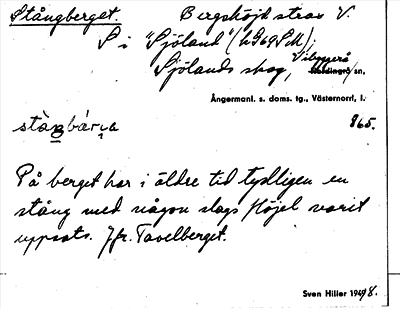 Stångberget. Bergshöjd strax V.
S i "Sjöland" (h 269 SM);
Sjölands skog, Vibyggerå
Nordingrå sn,
Ångermanl. s. doms. tg., Västernorrl. l.
stàŋbár̥ʒa 865.
På berget har i äldre tid tydligen en
stång med någon slags fløjel varit
uppsatt. Jfr. Tavelberget.
Sven Hiller 1948.